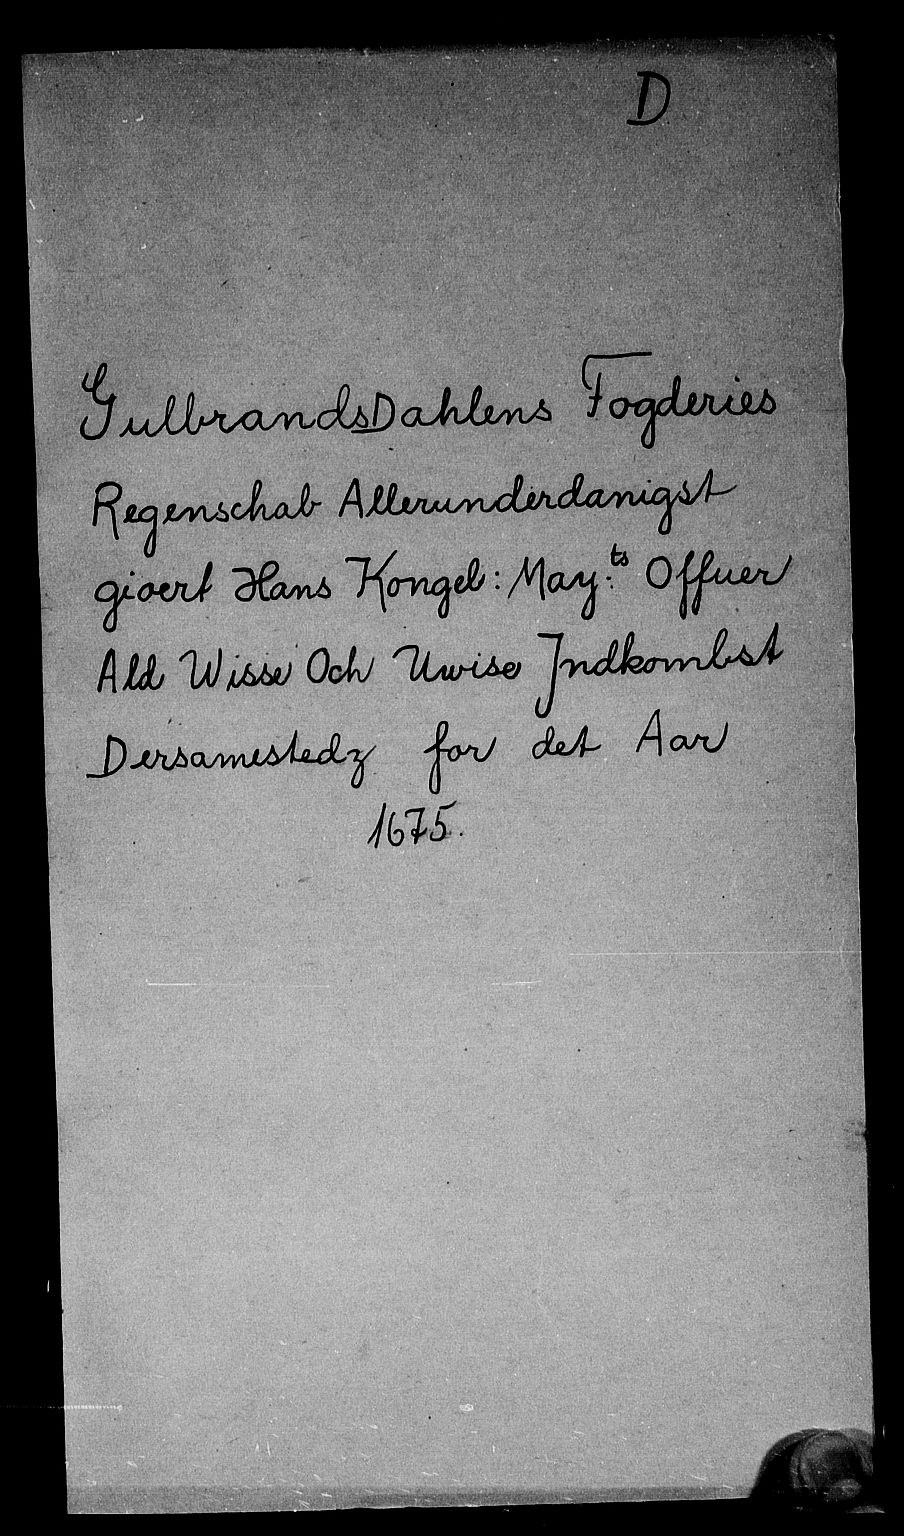 D
GulbrandsDahlens Fogderies
Regenschab Allerunderdanigst
gioert Hans Kongel: May:ts Offuer
Ald Wisse Och Uwise Indkombst
Dersamestedz for det Aar
1675.